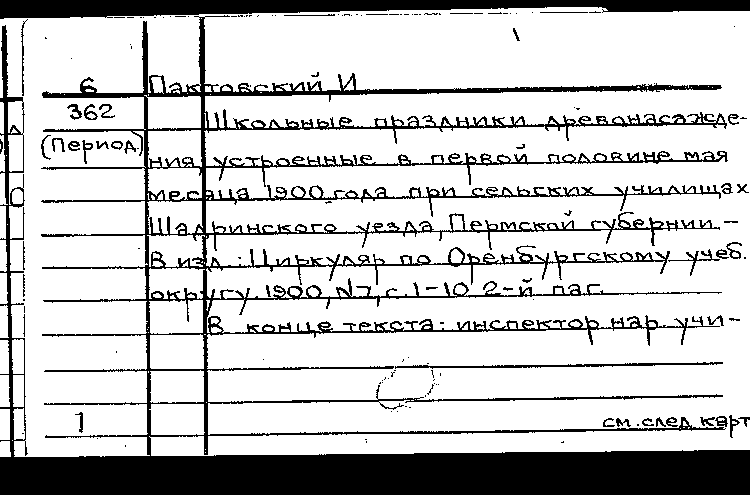 6 Пактовский, И
362 Школьные праздники древонасажде-
(Период.) ния, устроенные в первой половине мая
месяца 1900 года при сельских училищах
Шадринского уезда, Пермской губернии.-
В изд.: Циркуляр по Оренбургскому учеб.
округу. 1900, №7, с. 1-10 2-й паг.
В конце текста: инспектор нар. учи-
1 см. след. карт